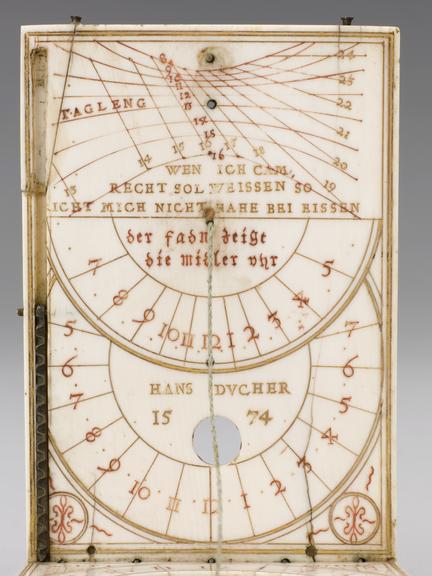 24
23
22
21
20
19
8
9
10
11
12
13
14
15
16
TAGLENG
13 14 15 16 17 18
WEN ICH CAM
RECHT SOL WEISSEN SO
ICHT MICH NICHT NAHE BEI EISSEN
der fadn zeigt
die mitler vhr
7 8 9 10 11 12 1 2 3 4 5
5 6 7 8 9 10 11 12 1 2 3 4 5 6 7
HANS DVCHER
15 74